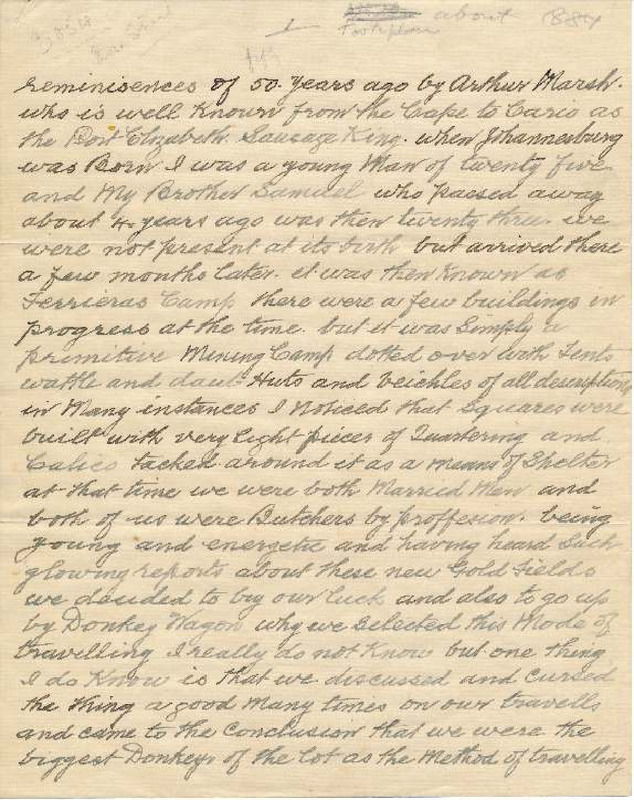 1
about 1884
Footsplan
reminisences of 50 Years ago by Arthur Marsh.
who is well Known from the Cape to Cario as
the Port Elizabeth Sausage King. when Johannesburg
was Born I was a young Man of twenty five
and My Brother Samuel who passed away
about 4 years ago was then twenty three we
were not present at its birth but arrived there
a few months later. it was then Known as
Ferrieras Camp there were a few buildings in
progress at the time. but it was Simply a
primitive Mining Camp dotted over with Tents
wattle and daub Huts and Veichles of all descriptions
in Many instances I noticed that Squares were
built with very light pieces of Quartering and
Calico tacked around it as a means of Shelter
at that time we were both Married Men and
both of us were Butchers by proffesion. being
young and energetic and having heard Such
glowing reports about these new Gold Fields
we decided to try our luck and also to go up
by Donkey Wagon why we Selected this Mode of
travelling I really do not Know but one thing
I do Know is that we discussed and Cursed
the thing a good Many times on our travells
and came to the Conclusion that we were the
biggest Donkeys of the lot as the Method of travelling